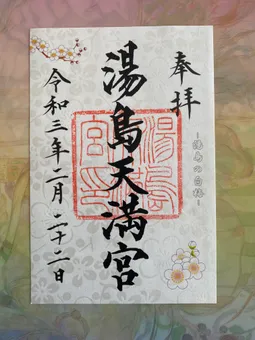 奉拝
~湯島の白梅~
湯島天満宮
湯島
宮印
令和三年二月二十二日